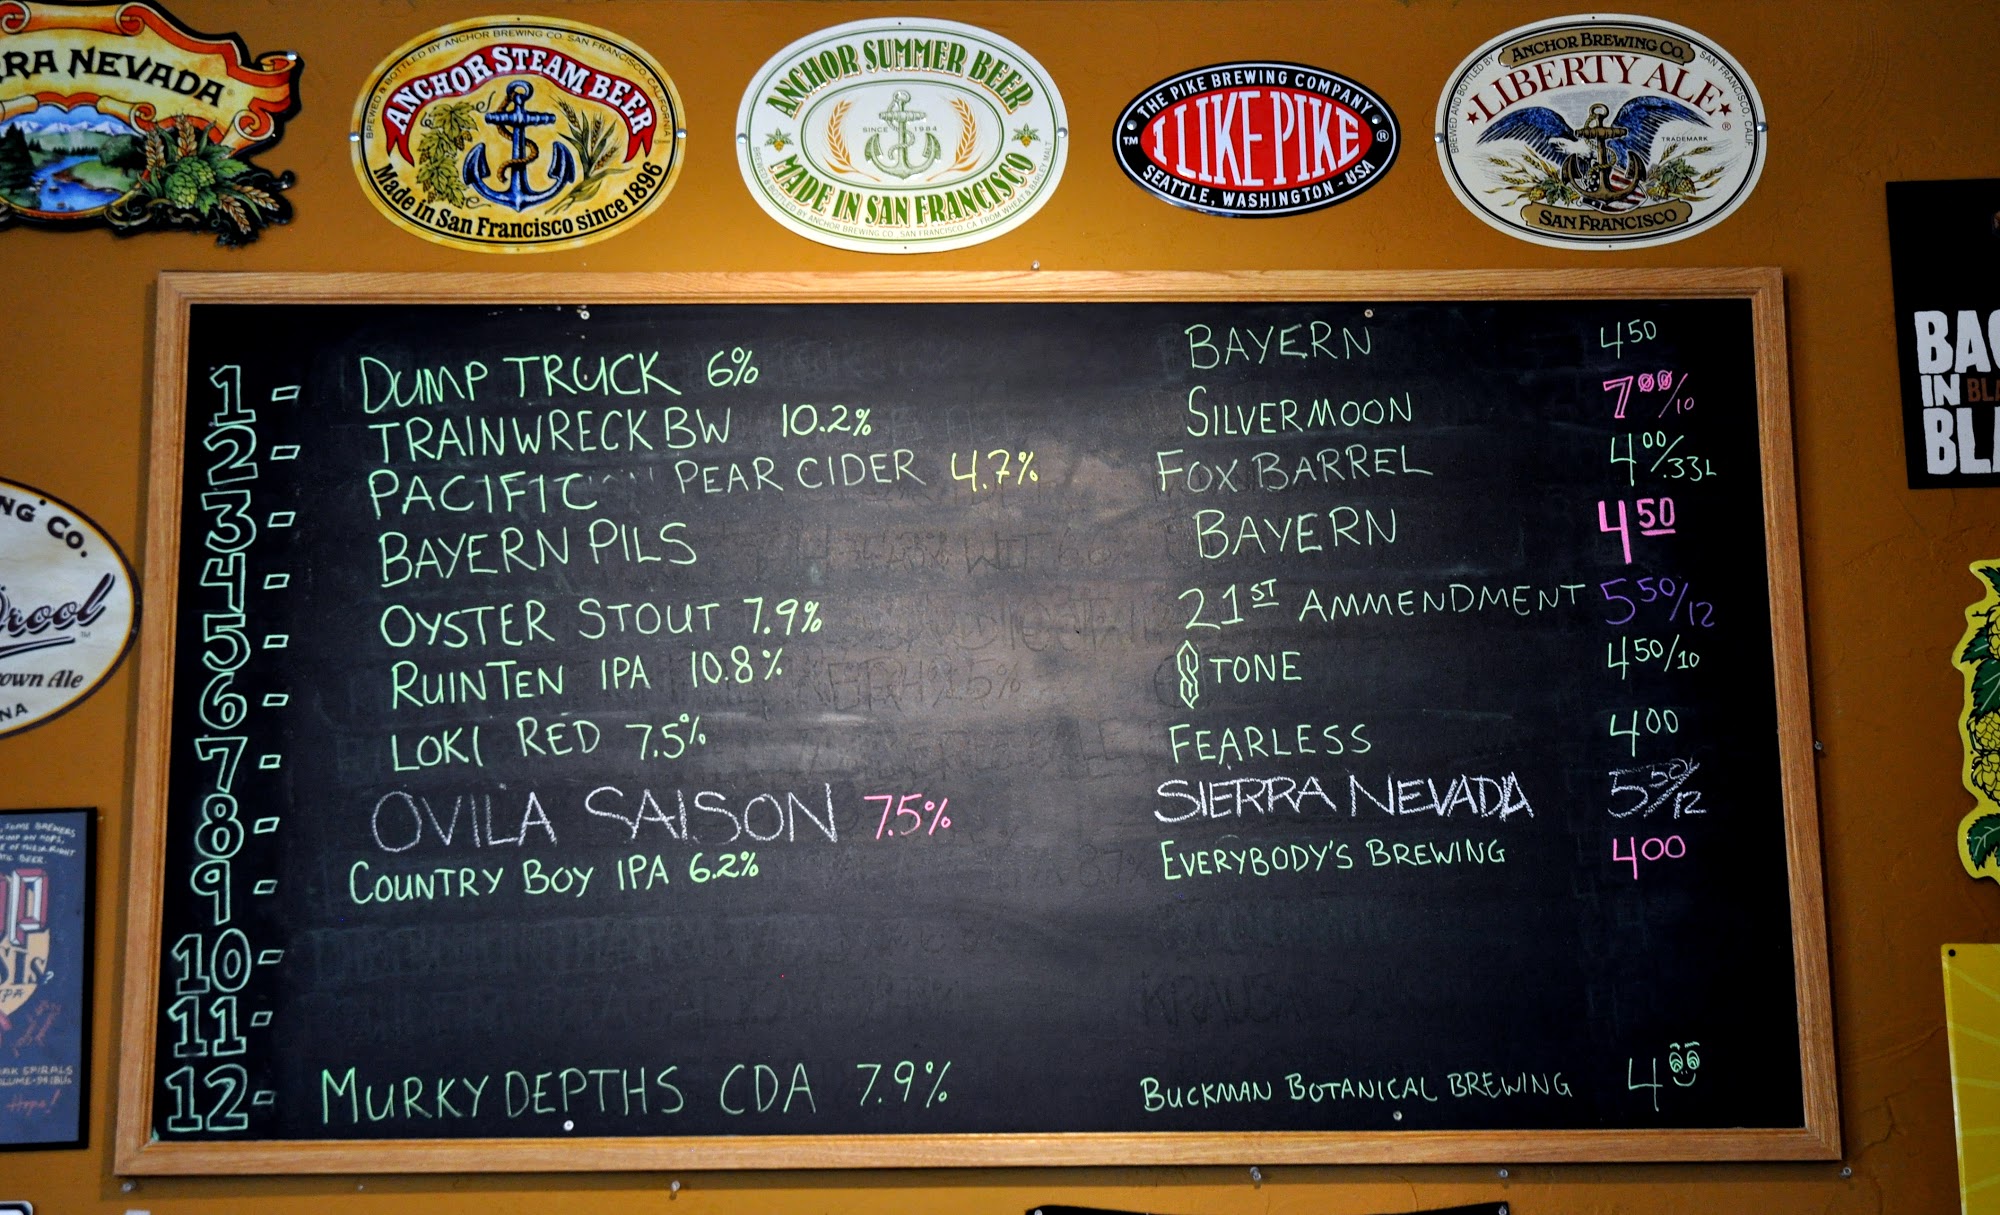 RRA NEVADA
BREWED & BOTTLED BY ANCHOR BREWING CO. SAN FRANCISCO, CALIFORNIA
ANCHOR STEAM BEER
Made in San Francisco since 1896
ANCHOR SUMMER BEER
SINCE 1984
MADE IN SAN FRANCISCO
BREWED & BOTTLED BY ANCHOR BREWING CO. SAN FRANCISCO, CA. FROM WHEAT & BARLEY MALT
THE PIKE BREWING COMPANY
TM I LIKE PIKE ®
SEATTLE, WASHINGTON - USA
BREWED AND BOTTLED BY ANCHOR BREWING CO. SAN FRANCISCO, CALIF
LIBERTY ALE ®
TRADEMARK
SAN FRANCISCO
1- DUMP TRUCK 6% BAYERN 4 50
2- TRAINWRECK BW 10.2% SILVERMOON 7 00/10
3- PACIFIC PEAR CIDER 4.7% FOX BARREL 4 00/.33L
4- BAYERN PILS BAYERN 4 50
5- OYSTER STOUT 7.9% 21ST AMMENDMENT 5 50/12
6- RUINTEN IPA 10.8% STONE 4 50/10
7- LOKI RED 7.5% FEARLESS 4 00
8- OVILA SAISON 7.5% SIERRA NEVADA 5 50/12
9- COUNTRY BOY IPA 6.2% EVERYBODY'S BREWING 4 00
10-
11-
12- MURKY DEPTHS CDA 7.9% BUCKMAN BOTANICAL BREWING 4 00
NG CO.
Drool TM
own Ale
NA
BAC
IN BLA
BLA
SIS?
IPA
Hops!